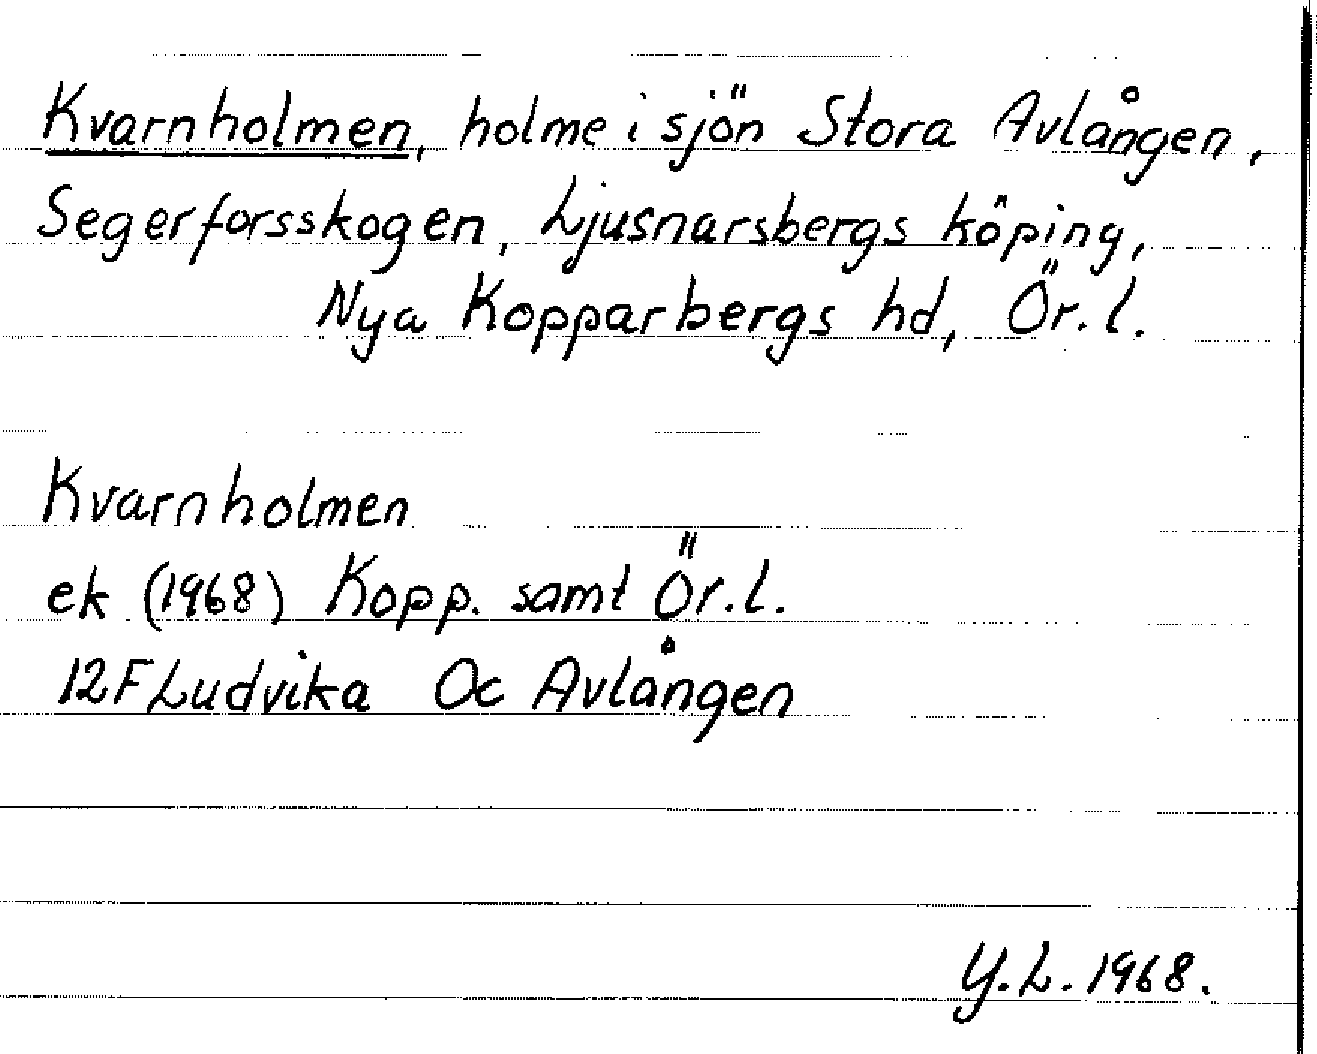 Kvarnholmen, holme i sjön Stora Avlången,
Segerforsskogen, Ljusnarsbergs köping,
Nya Kopparbergs hd, Ör. l.
Kvarnholmen
ek (1968) Kopp. samt Ör. l.
12F Ludvika Oc Avlången
Y. L. 1968.